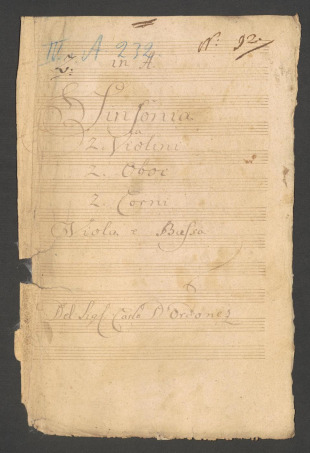 III A 232 N: 92
in A
Sinfonia
a
2. Violini
2. Oboe
2. Corni
Viola e Basso
Del Sig: Carlo D'Ordonez